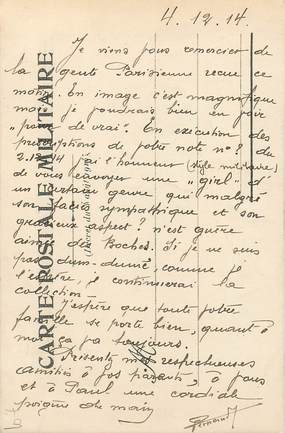 4.12.14.
Je viens vous remercier de
la gente Parisienne recue ce
matin. En image c'est magnifique
mais je voudrais bien en voir
"pour de vrai". En exécution des
prescriptions de votre note n° 8 du
2.12.14 j'ai l'honneur (style militaire)
de vous envoyer une "girl" d'
un certain genre qui malgré
son faciès sympathique et son
gracieux aspect? n'est guère
aimé des Boches. Si je ne suis
pas dum-dumé, comme je
l'espère, je continuerai la
collection —
J'espère que toute votre
famille se porte bien, quant à
moi ça va toujours.
Présentez mes respectueuses
amitiés à vos parents, à vous
et à Paul une cordiale
poignée de main
CARTE POSTALE MILITAIRE